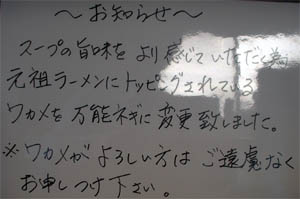 〜お知らせ〜
スープの旨味をより感じていただく為
元祖ラーメンにトッピングされている
ワカメを万能ネギに変更致しました。
※ワカメがよろしい方はご遠慮なく
お申しつけ下さい。